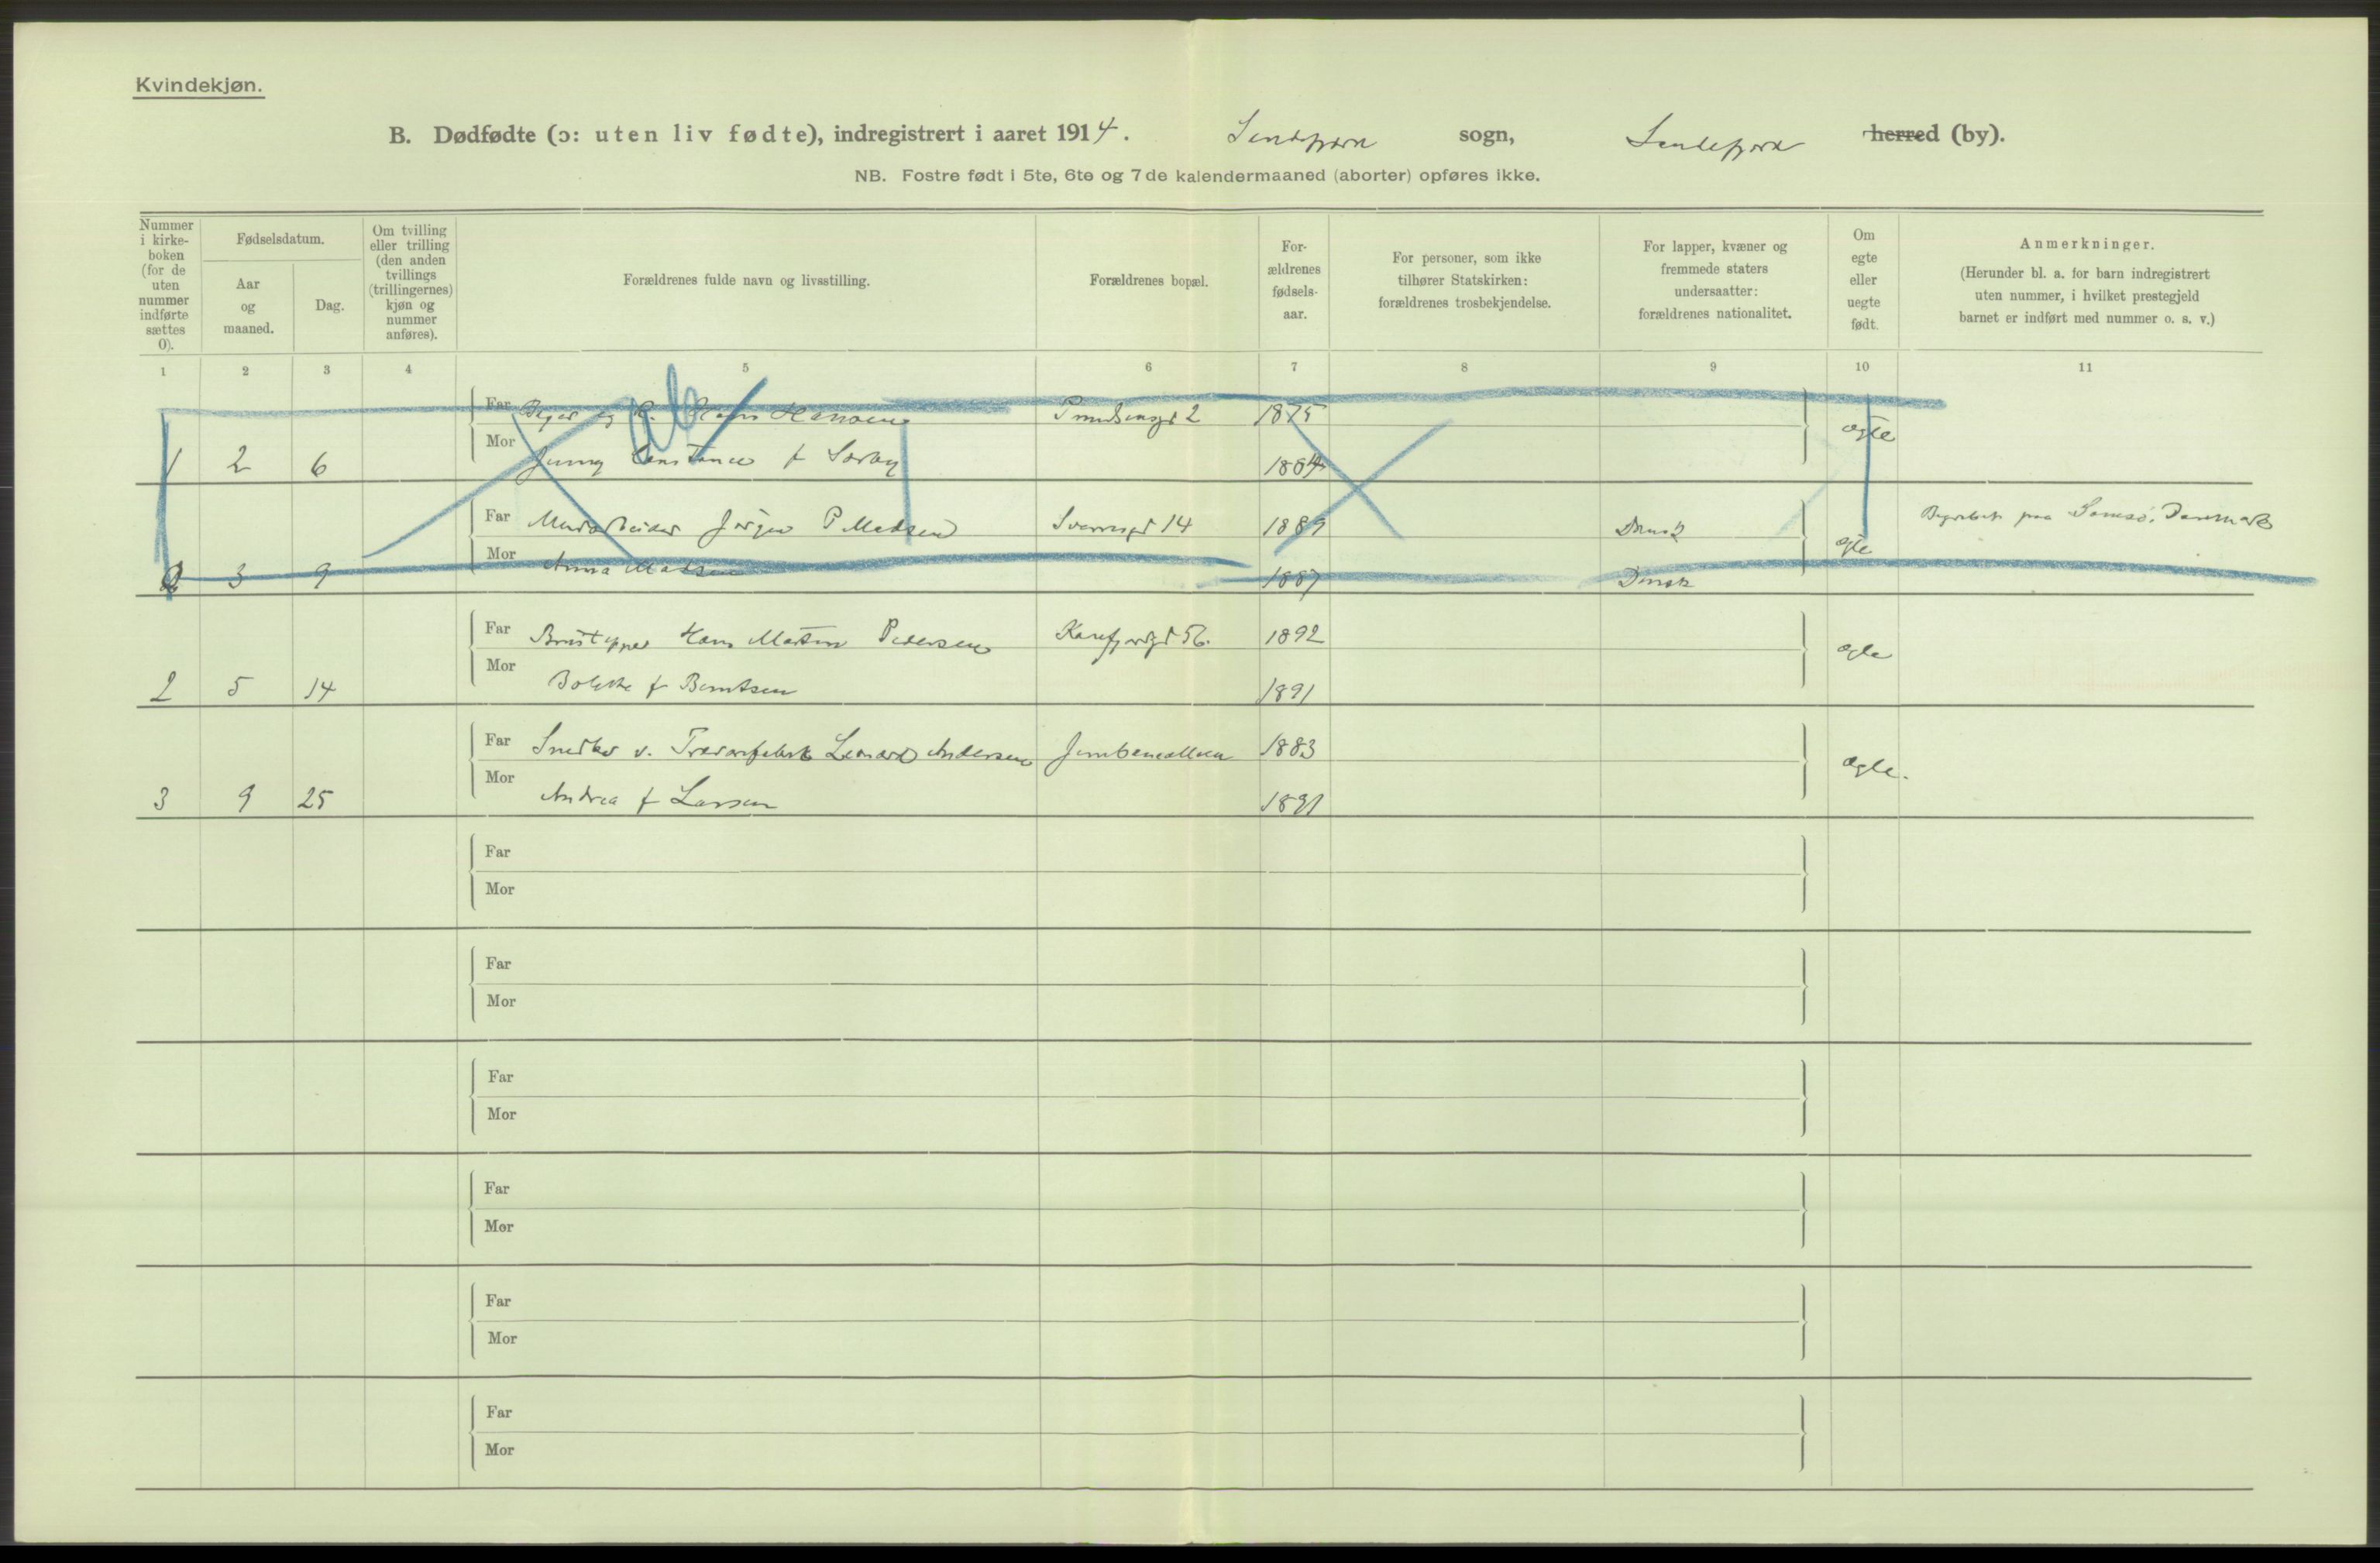 Kvindekjøn.
B. Dødfødte (ɔ: uten liv fødte), indregistrert i aaret 1914. Sandefjord sogn, Sandefjord herred (by).
NB. Fostre født i 5te, 6te og 7de kalendermaaned (aborter) opføres ikke.
Nummer i kirke-boken (for de uten nummer indførte sættes 0).
Fødselsdatum.
Aar og maaned.
Dag.
Om tvilling eller trilling (den anden tvillings (trillingernes) kjøn og nummer anføres).
Forældrenes fulde navn og livsstilling.
Forældrenes bopæl.
For-ældrenes fødsels-aar.
For personer, som ikke tilhører Statskirken: forældrenes trosbekjendelse.
For lapper, kvæner og fremmede staters undersaatter: forældrenes nationalitet.
Om egte eller uegte født.
Anmerkninger.
(Herunder bl. a. for barn indregistrert uten nummer, i hvilket prestegjeld barnet er indført med nummer o. s. v.)
1 2 3 4 5 6 7 8 9 10 11
Far Hans Hansen 2 1875
ab
Mor Jenny Constance f Sørby
1 2 6 ægte
Far Murarbeider Jørgen P Madsen 14 1889 Dansk
Samsø, Danmark
Mor Anna Madsen 1887 Dansk
2 3 9 ægte
Far Hans Martin Pedersen 56. 1892
Mor Bolette f Berntsen 1891
2 5 14 ægte
Far Snedker v. Trævarefabrik Leonard Andersen Jernbanealleen 1883
Mor Andrea f Larsen 1891
3 9 25 ægte.
Far
Mor
Far
Mor
Far
Mor
Far
Mor
Far
Mor
Far
Mor